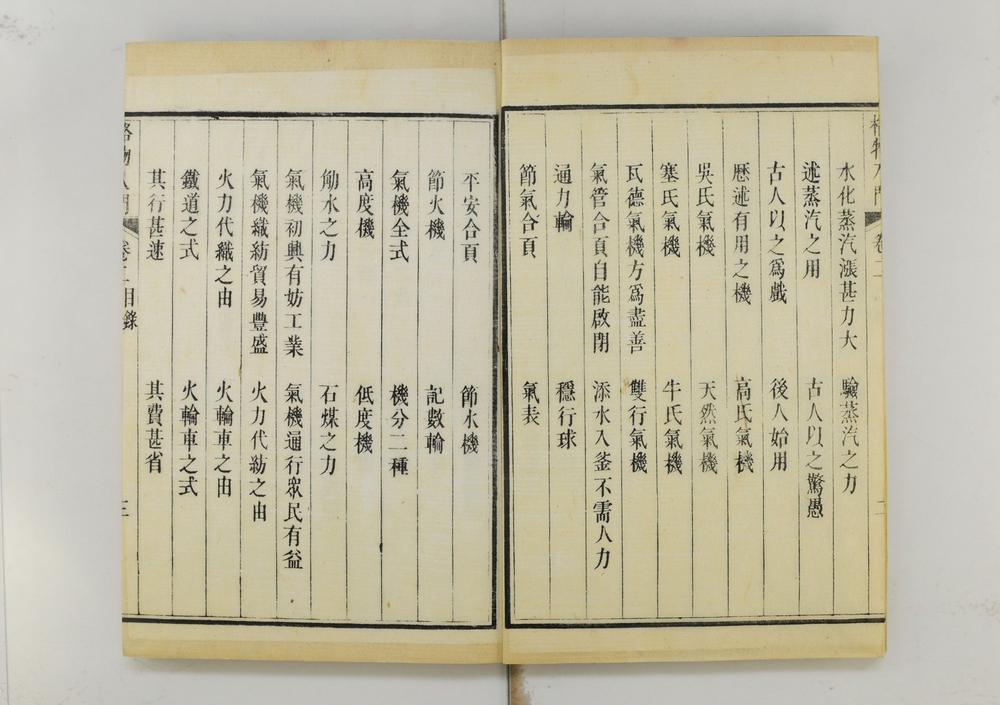 水化蒸汽漲甚力大　驗蒸汽之力
述蒸汽之用　古人以之驚愚
古人以之爲戲　後人始用
歷述有用之機　高氏氣機
吳氏氣機　天然氣機
塞氏氣機　牛氏氣機
瓦德氣機方爲盡善　雙行氣機
氣管合頁自能啟閉　添水入釜不需人力
通力輪　穩行球
節氣合頁　氣表
平安合頁　節水機
節火機　記數輪
氣機全式　機分二種
高度機　低度機
勪水之力　石煤之力
氣機初興有妨工業　氣機通行眾民有益
氣機織紡貿易豐盛　火力代紡之由
火力代織之由　火輪車之由
鐵道之式　火輪車之式
其行甚速　其費甚省
格物入門　卷二目錄　三